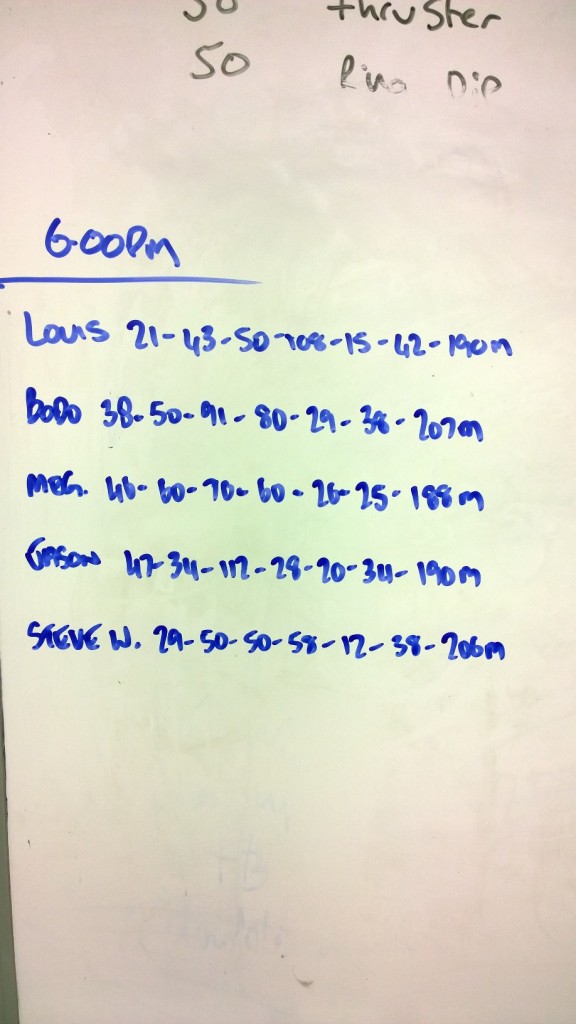 50 thruster
50 Ring Dip
6:00PM
Louis 21-43-50-108-15-42-190m
BoDo 38-50-91-80-29-38-207m
MEG. 46-60-70-60-26-25-188m
47-34-112-28-20-34-190m
STEVE W. 29-50-50-58-12-38-206m